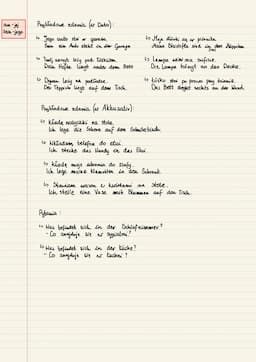 Przykładowe zdania (w Dativ):
↳ Jego auto stoi w garażu.
Sein Auto steht in der Garage.
↳ Twój zeszyt leży pod łóżkiem.
Dein Heft liegt unter dem Bett.
↳ Dywan leży na podłodze.
Der Teppich liegt auf dem Boden.
↳ Moje są w
Meine sind in den
↳ Lampa wisi na suficie.
Die Lampe hängt an der Decke.
↳ Łóżko stoi po prawej przy ścianie.
Das Bett steht rechts an der Wand.
Przykładowe zdania (w Akkusativ):
↳ Kładę nożyczki na stole.
Ich lege die Schere auf den Schreibtisch.
↳ Wkładam telefon do etui.
Ich stecke das Handy in das Etui.
↳ Kładę moje ubrania do szafy.
Ich lege meine Klamotten in den Schrank.
↳ Stawiam wazon z kwiatami na stole.
Ich stelle eine Vase mit Blumen auf den Tisch.
Pytania:
↳ Was befindet sich in der Schlafzimmer?
- Co znajduje się w sypialni?
↳ Was befindet sich in der Küche?
- Co znajduje się w kuchni?